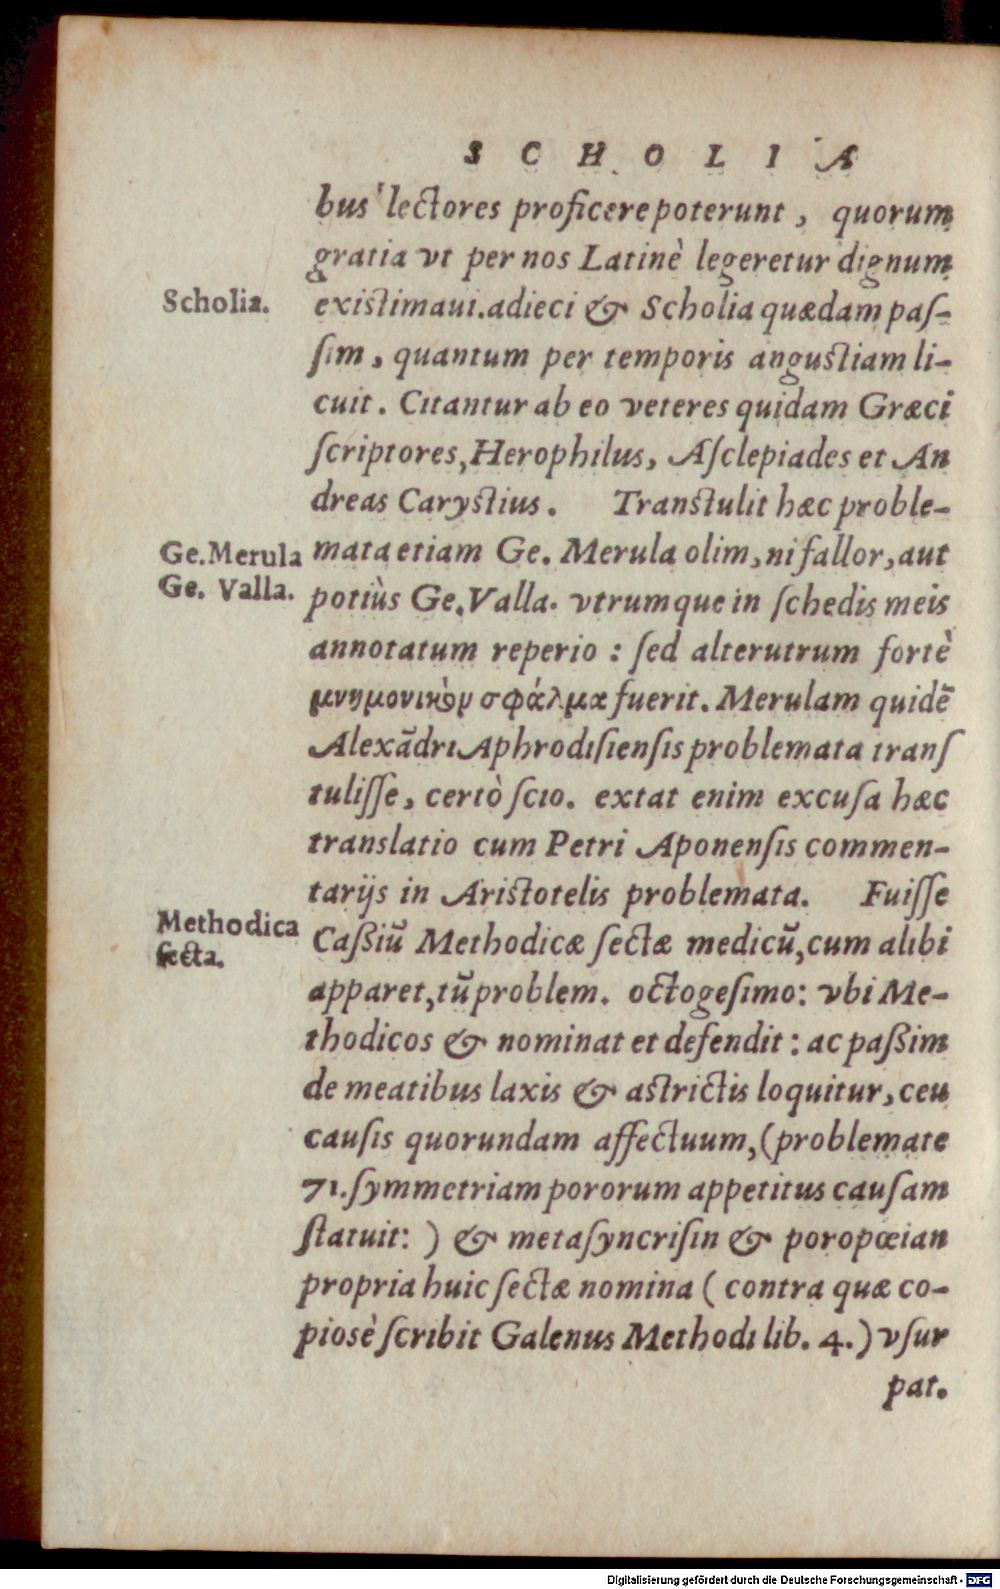 SCHOLIA
bus lectores proficere poterunt, quorum
gratia vt per nos Latinè legeretur dignum
Scholia.
existimaui. adieci & Scholia quædam paſ-
ſim, quantum per temporis angustiam li-
cuit. Citantur ab eo veteres quidam Græci
ſcriptores, Herophilus, Aſclepiades et An
dreas Carystius. Transtulit hæc proble-
Ge. Merula
mata etiam Ge. Merula olim, ni fallor, aut
Ge. Valla.
potiùs Ge. Valla. vtrumque in ſchedis meis
annotatum reperio : ſed alterutrum fortè
μνημονικὸν σφάλμα fuerit. Merulam quidē
Alexādri Aphrodiſienſis problemata tranſ
tuliſſe, certò ſcio. extat enim excuſa hæc
translatio cum Petri Aponenſis commen-
tarijs in Aristotelis problemata. Fuiſſe
Methodica
ſecta.
Caßiū Methodicæ ſectæ medicū, cum alibi
apparet, tū problem. octogeſimo: vbi Me-
thodicos & nominat et defendit : ac paßim
de meatibus laxis & astrictis loquitur, ceu
cauſis quorundam affectuum, (problemate
71. ſymmetriam pororum appetitus cauſam
ſtatuit: ) & metaſyncriſin & poropœian
propria huic ſectæ nomina ( contra quæ co-
piosè ſcribit Galenus Methodi lib. 4.) vſur
pat.
Digitalisierung gefördert durch die Deutsche Forschungsgemeinschaft - DFG